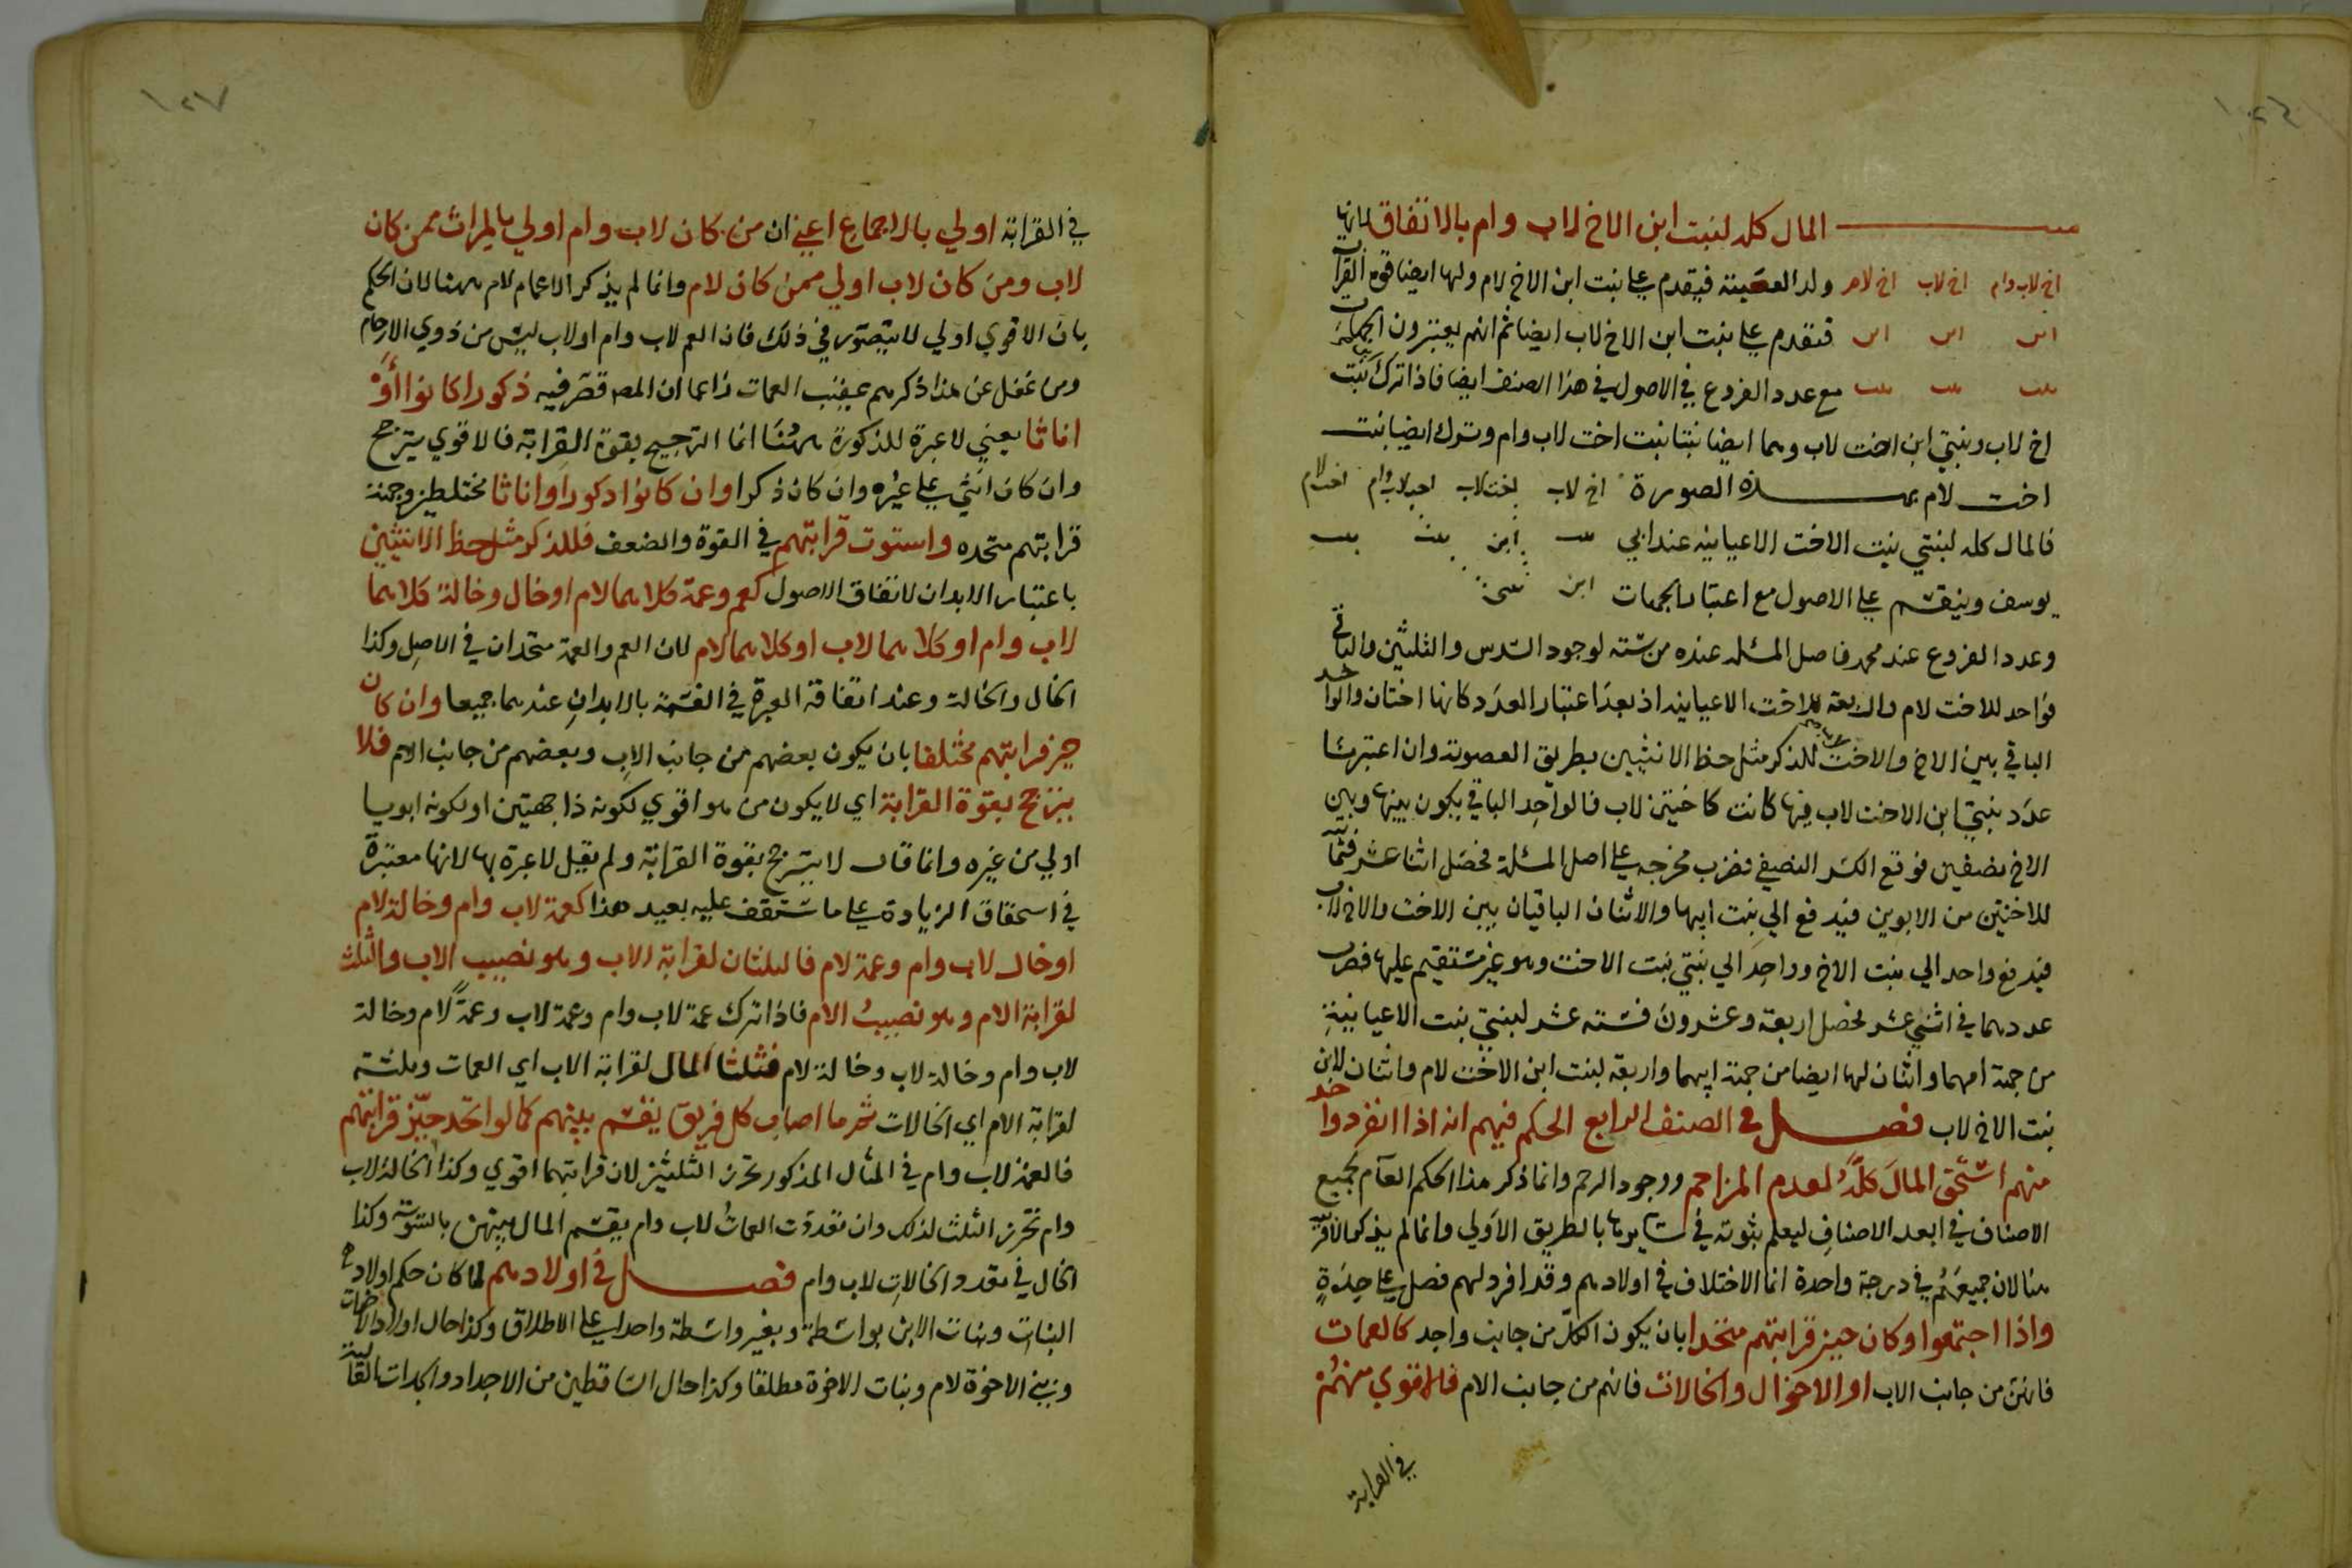 المال كله لبنت ابن الاخ لاب وام بالاتفاق لانها
اخ لاب وام اخ لاب اخ لام ولد العصبة فيقدم على بنت ابن الاخ لام ولها ايضا قوة القراب
ابن ابن ابن فتقدم على بنت ابن الاخ لاب ايضا ثم انهم يعتبرون الجهات
بنت بنت بنت مع عدد الفروع في الاصول في هذا الصنف ايضا فاذا ترك بنت
اخ لاب وبنتي ابن اخت لاب وهما ايضا بنتا بنت اخت لاب وام وترك ايضا بنت
اخت لام بهذه الصورة اخ لاب اخت لاب اخت لاب وام اخت لام
فالمال كله لبنتي بنت الاخت الاعيانيه عند ابي بنت ابن بنت بنت
يوسف وينقسم على الاصول مع اعتبار الجهات
وعدد الفروع عند محمد فاصل المسئله عنده من ستة لوجود السدس والثلثين والباقي
فواحد للاخت لام والاربعة للاخت الاعيانية اذ بعد اعتبار العدد كانها اختان والواحد
الباقي بين الاخ والاخت للذكر مثل حظ الانثيين بطريق العصوبة وان اعتبرنا
عدد بنتي ابن الاخت لاب فيها كانت كاختين لاب فالواحد الباقي يكون بينها وبين
الاخ نصفين فوقع الكسر النصفي فضرب مخرجه على اصل المسئلة فحصل اثنا عشر فثمانية
للاختين من الابوين فيدفع الي بنت ابها والاثنان الباقيان بين الاخت والاخ لاب
فيدفع واحد الي بنت الاخ وواحد الي بنتي بنت الاخت وهو غير مستقيم عليها فضرب
عددهما في اثني عشر فحصل اربعة وعشرون فستة عشر لبنتي بنت الاعيانية
من جهة امهما واثنان لهما ايضا من جهة ابيهما واربعة لبنت ابن الاخت لام واثنان لابن
بنت الاخ لاب فصل في الصنف الرابع الحكم فيهم انه اذا انفرد واحد
منهم استحق المال كله لعدم المزاحم ووجود الرحم وانما ذكر هذا الحكم العام لجميع
الاصناف في ابعد الاصناف ليعلم ثبوته في سايرها بالطريق الاولي وانما لم يذكر الاقرب
هنا لان جميعهم في درجة واحدة انما الاختلاف في اولادهم وقد افرد لهم فصل على حدة
واذا اجتمعوا وكان حيز قرابتهم متحدا بان يكون الكل من جانب واحد كالعمات
فانهن من جانب الاب او الاخوال والخالات فانهم من جانب الام فالاقوي منهم
في القرابة
في القرابة اولي بالاجماع اعني ان من كان لاب وام اولي بالميراث ممن كان
لاب ومن كان لاب اولي ممن كان لام وانما لم يذكر الاعمام لام ههنا لان الحكم
بان الاقوي اولي لا يتصور في ذلك فان العم لاب وام او لاب ليس من ذوي الارحام
ومن غفل عن هذا ذكرهم عقيب العمات زاعما ان المص قصر فيه ذكورا كانوا او
اناثا يعني لا عبرة للذكورة ههنا انما الترجيح بقوة القرابة فالاقوي يترجح
وان كان انثي على غيره وان كان ذكرا وان كانوا ذكورا واناثا مختلطين وجهة
قرابتهم متحده واستوت قرابتهم في القوة والضعف فللذكر مثل حظ الانثيين
باعتبار الابدان لاتفاق الاصول كعم وعمة كلاهما لام او خال وخالة كلاهما
لاب وام او كلاهما لاب او كلاهما لام لان العم والعمة متحدان في الاصل وكذا
الخال والخالة وعند اتفاقه العبرة في القسمة بالابدان عندهما جميعا وان كان
حيز قرابتهم مختلفا بان يكون بعضهم من جانب الاب وبعضهم من جانب الام فلا
يترجح بقوة القرابة اي لا يكون من هو اقوي لكونه ذا جهتين او لكونه ابويا
اولي من غيره وانما قال لا يترجح بقوة القرابة ولم يقل لا عبرة بها لانها معتبرة
في استحقاق الزيادة على ما ستقف عليه بعيد هذا كعمة لاب وام وخالة لام
او خال لاب وام وعمة لام فالثلثان لقرابة الاب وهو نصيب الاب والثلث
لقرابة الام وهو نصيب الام فاذا ترك عمة لاب وام وعمة لاب وعمة لام وخالة
لاب وام وخالة لاب وخالة لام فثلثا المال لقرابة الاب اي العمات وثلثه
لقرابة الام اي الخالات ثم ما اصاب كل فريق يقسم بينهم كما لو اتحد حيز قرابتهم
فالعمة لاب وام في المثال المذكور تحرز الثلثين لان قرابتهما اقوي وكذا الخالة لاب
وام تحرز الثلث لذلك وان تعددت العمات لاب وام يقسم المال بينهن بالسوية وكذا
الحال في تعدد الخالات لاب وام فصل في اولادهم لما كان حكم اولاد
البنات وبنات الابن بواسطة وبغير واسطة واحدا على الاطلاق وكذا حال اولاد الاخوات
وبني الاخوة لام وبنات الاخوة مطلقا وكذا حال الساقطين من الاجداد والجدات